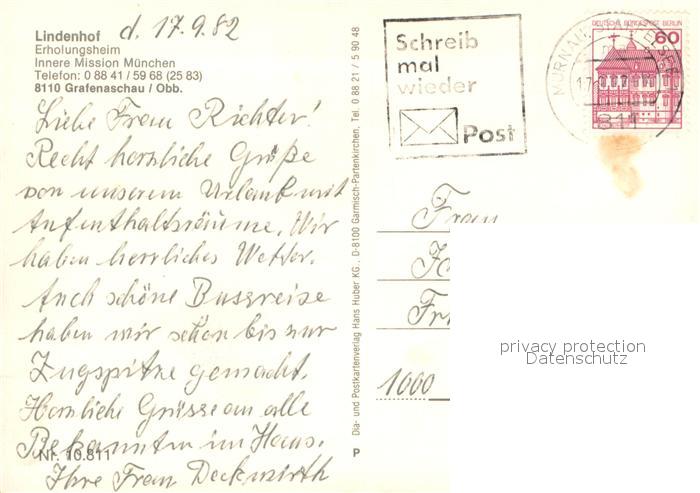 Lindenhof
Erholungsheim
Innere Mission München
Telefon: 0 88 41 / 59 68 (25 83)
8110 Grafenaschau / Obb.
d. 17.9.82
Liebe Frau Richter!
Recht herzliche Grüße
von unserem Urlaub mit
Aufenthaltsräume. Wir
haben herrliches Wetter.
Auch schöne Bussreise
haben wir schon bis zur
Zugspitze gemacht.
Herzliche Grüsse an alle
Bekannten im Haus.
Nr. 10.811
Ihre Frau Deckwirth
Dia- und Postkartenverlag Hans Huber KG., D-8100 Garmisch-Partenkirchen, Tel. 0 88 21 / 5 90 48
P
Schreib
mal
wieder
Post
DEUTSCHE BUNDESPOST BERLIN
60
MURNAU
811
Frau
1000
privacy protection
Datenschutz